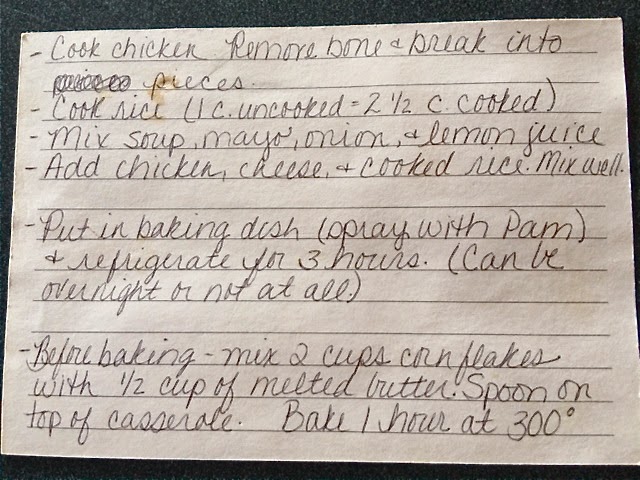 - Cook chicken. Remove bone & break into
pieces.
- Cook rice (1 c. uncooked = 2 1/2 c. cooked)
- Mix soup, mayo, onion, & lemon juice
- Add chicken, cheese, & cooked rice. Mix well.
- Put in baking dish (spray with Pam)
& refrigerate for 3 hours. (Can be
overnight or not at all)
- Before baking - mix 2 cups corn flakes
with 1/2 cup of melted butter. Spoon on
top of casserole. Bake 1 hour at 300°